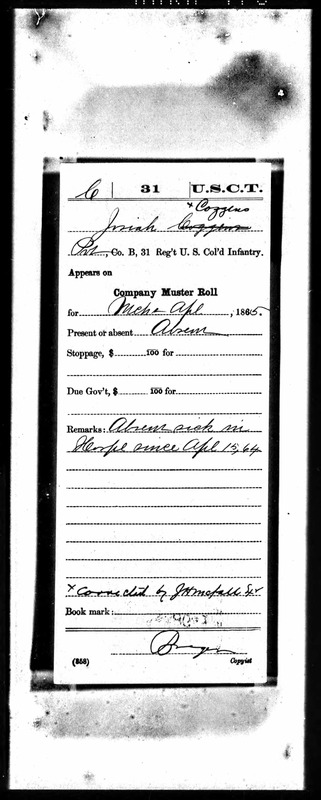 C | 31 | U.S.C.T.
× Cozzens
Josiah
Pvt, Co. B, 31 Reg't U. S. Col'd Infantry.
Appears on
Company Muster Roll
for Mch & Apl, 1865.
Present or absent Absent
Stoppage, $ 100 for
Due Gov't, $ 100 for
Remarks: Absent sick in
Hospl since Apl 15, 64
× Corrected by
Book mark:
(358) Copyist